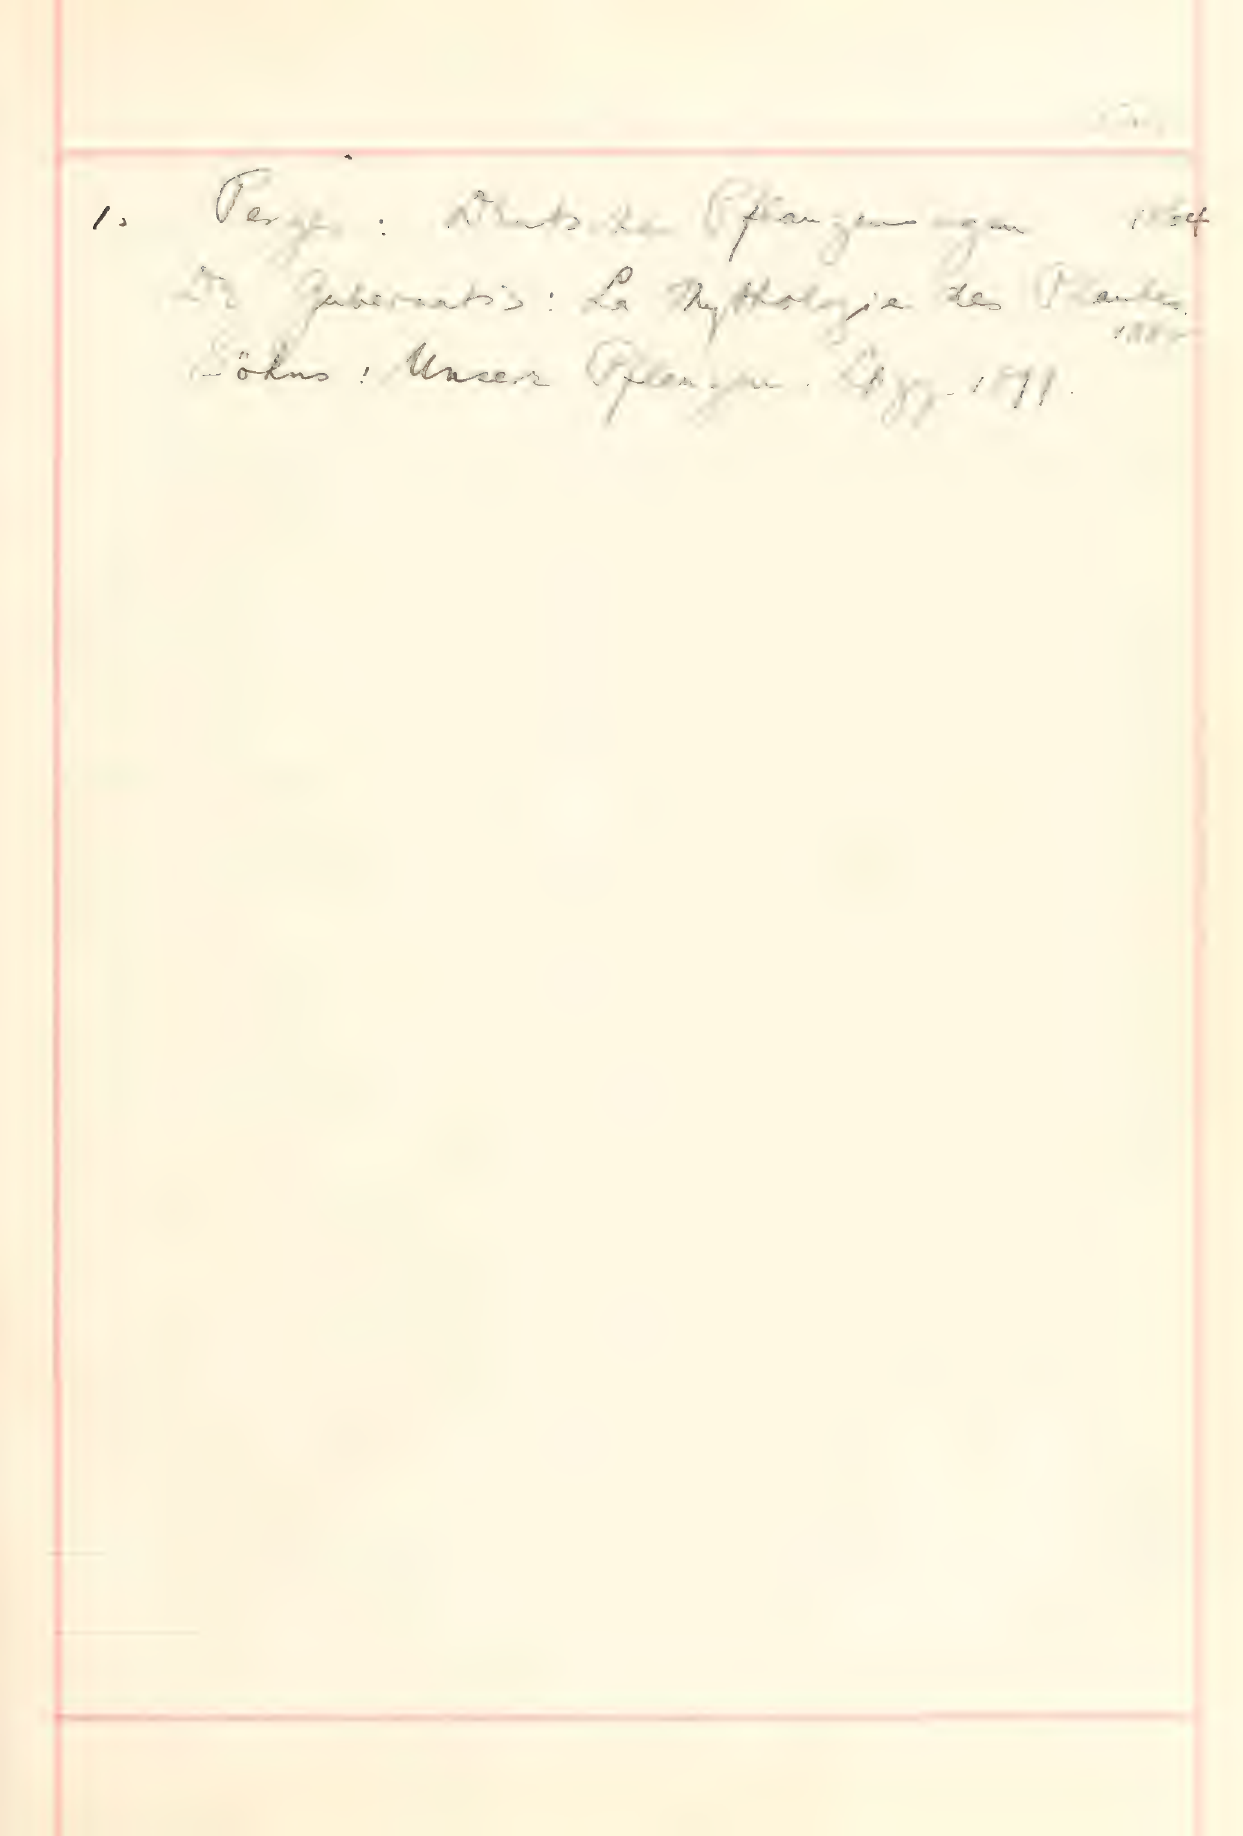 1. Perger : Deutsche Pflanzensagen 1864
De Gubernatis : La Mythologie des Plantes.
Söhns : Unsere Pflanzen. Lpzg.